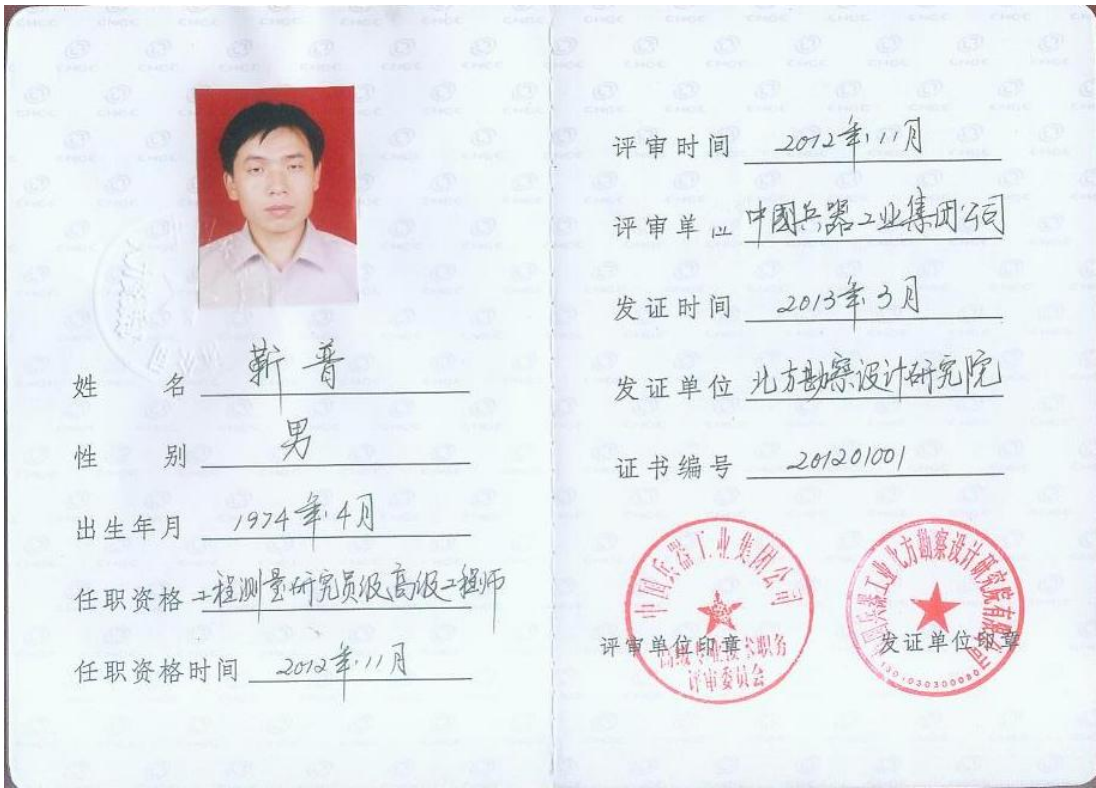 姓 名 靳普
性 别 男
出生年月 1974年4月
任职资格 工程测量研究员级高级工程师
任职资格时间 2012年11月
评审时间 2012年11月
评审单位 中國兵器工业集团公司
发证时间 2013年3月
发证单位 北方勘察设计研究院
证书编号 201201001
中国兵器工业集团公司
高级专业技术职务
评审委员会
评审单位印章
中国兵器工业北方勘察设计研究院有限公司
发证单位印章
CNGC